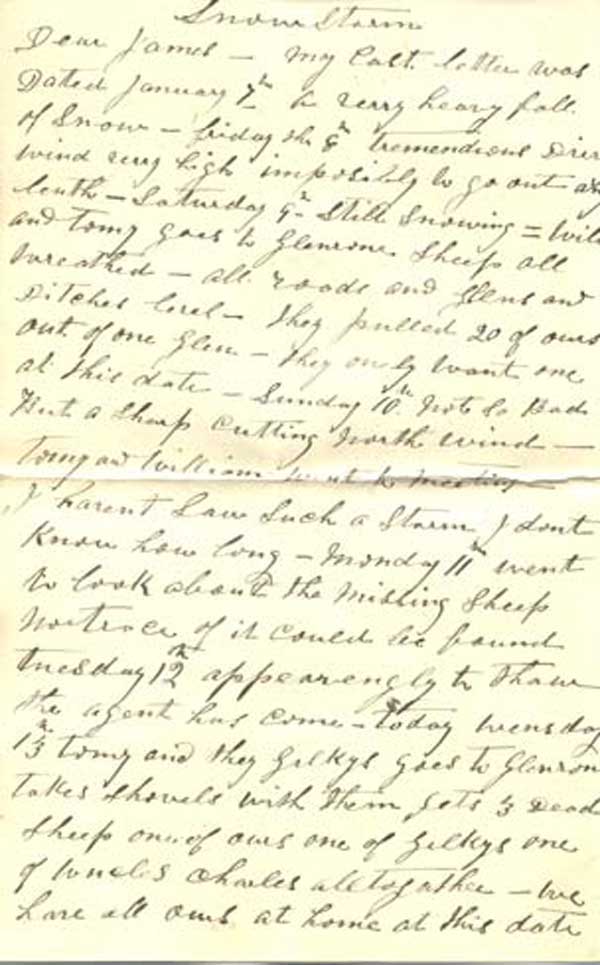 Snow Storm
Dear James - my last letter was
Dated January 7th A verry heavy fall
of Snow - friday the 8th tremendious Drif
wind verry high imposibly to go out
- Saturday 9th Still Snowing = Will
and Tomy goes to Glenrone Sheep all
wreathed - all roads and Glens and
Ditches level - they pulled 20 of ours
out of one Glen - they onely want one
at this date - Sunday 10th Not So Bad
But a Sharp Cutting North wind -
Tomy and William went to meeting -
I havent Saw Such a Storm I dont
Know how long - Monday 11th went
to look about the Missing Sheep
No trace of it Could be found
tuesday 12th appearengly to thaw
the agent has come - today wensday
13th Tomy and they Gilkys goes to Glenron
takes Shovels with them gets 3 Dead
Sheep one of ours one of Gilkys one
of Uncles Charles alltogather - we
have all ours at home at this date